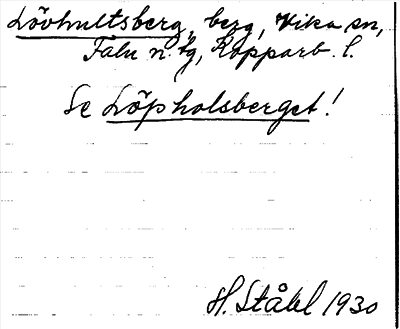 Lövhultsberg, berg, Vika sn,
Falu n. tg, Kopparb. l.
Se Löpholsberget!
H. Ståhl 1930